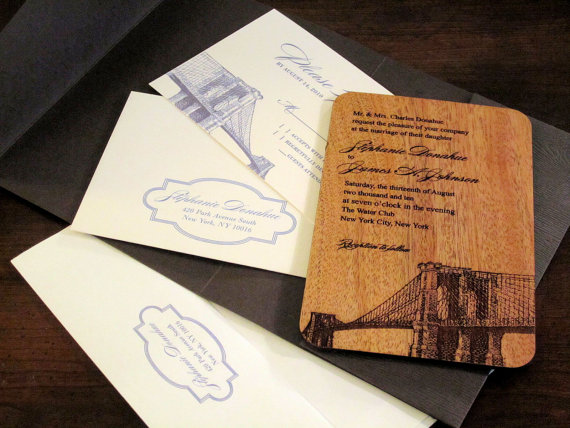 Please
BY AUGUST 14, 2010
ACCEPTS WITH
REGRETFULLY DE
GUESTS ATTENDI
Mr. & Mrs. Charles Donahue
request the pleasure of your company
at the marriage of their daughter
Stephanie Donahue
to
James K. Johnson
Saturday, the thirteenth of August
two thousand and ten
at seven o'clock in the evening
The Water Club
New York City, New York
Reception to follow
Stephanie Donahue
420 Park Avenue South
New York, NY 10016
Stephanie Donahue
420 Park Avenue South
New York, NY 10016